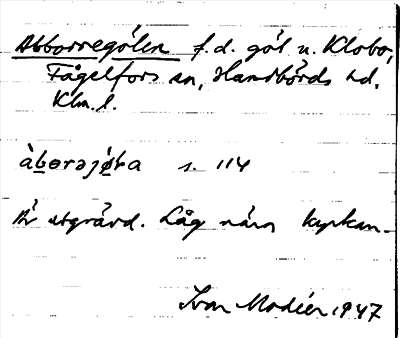 Abborregölen f.d. göl u. Klobo,
Fågelfors sn, Handbörds hd.
Klm. l.
àbɵrəjö̀ka s. 114
Är utgrävd. Låg nära kyrkan.
Ivar Modéer 1947